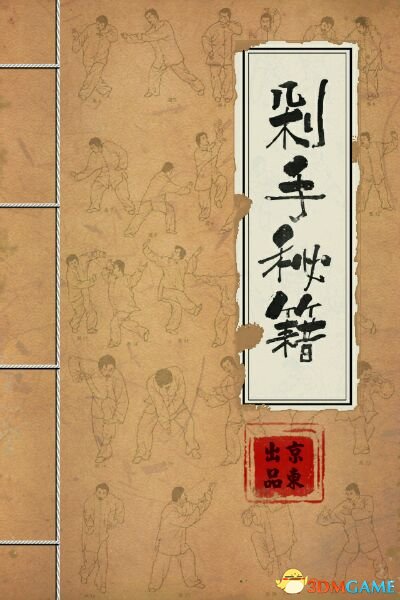 剁手秘籍
京東
出品
3DMGAME